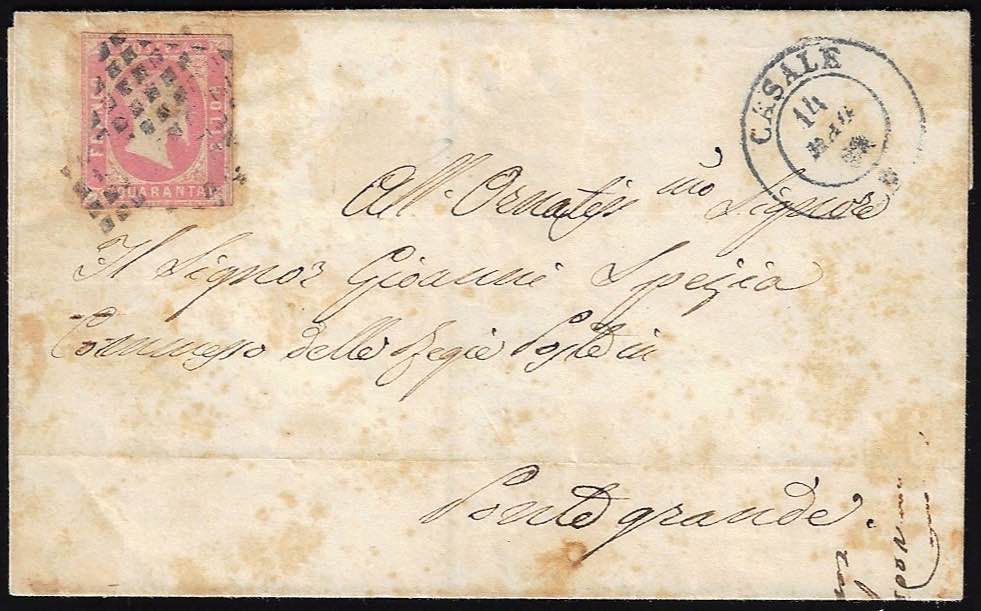 FRAN
BOLLO
QUARANTA
CASALE
14
MAG
All' Ornatiss mo Signore
Il Signor Gioanni Spezia
Commesso delle Regie Poste in
Pontegrande.